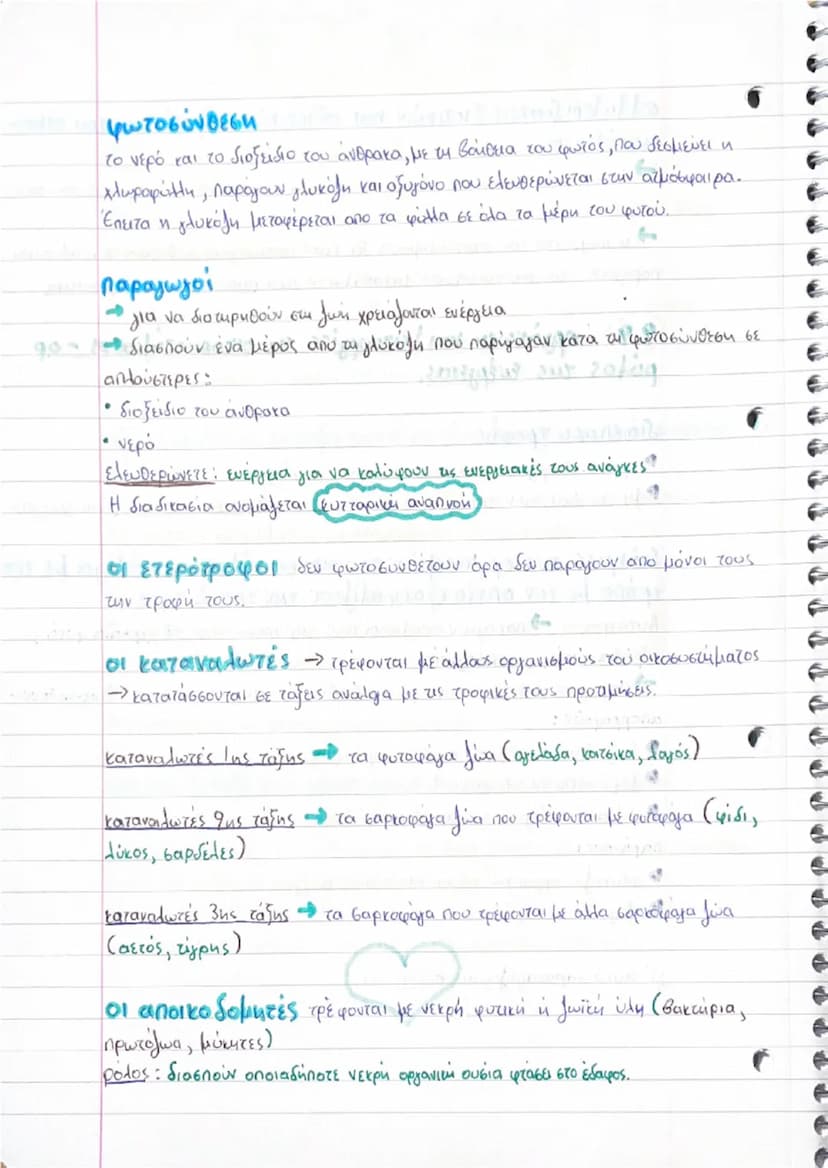 φωτοσύνθεση
το νερό και το διοξείδιο του άνθρακα, με τη βοήθεια του φωτός, που δεσμεύει η
χλωροφύλλη, παράγουν γλυκόζη και οξυγόνο που ελευθερώνεται στην ατμόσφαιρα.
Έπειτα η γλυκόζη μεταφέρεται απο τα φύλλα σε όλα τα μέρη του φυτού.
παραγωγοί
→ για να διατηρηθούν στη ζωή χρειάζονται ενέργεια
→ διασπούν ένα μέρος από τη γλυκόζη που παρήγαγαν κατα τη φωτοσύνθεση σε
απλούστερες:
• διοξείδιο του άνθρακα
• νερό
Ελευθερώνετε: ενέργεια για να καλύψουν τις ενεργειακές τους ανάγκες
Η διαδικασία ονομάζεται κυτταρική αναπνοή
οι ετερότροφοι δεν φωτοσυνθέτουν άρα δεν παράγουν από μόνοι τους
την τροφή τους.
οι καταναλωτές → τρέφονται με άλλους οργανισμούς του οικοσυστήματος
→ κατατάσσονται σε τάξεις ανάλογα με τις τροφικές τους προτιμήσεις.
καταναλωτές 1ης τάξης → τα φυτοφάγα ζώα (αγελάδα, κατσίκα, λαγός)
καταναλωτές 2ης τάξης → τα σαρκοφάγα ζώα που τρέφονται με φυτοφάγα (φίδι,
λύκος, σαρδέλες)
καταναλωτές 3ης τάξης → τα σαρκοφάγα που τρέφονται με άλλα σαρκοφάγα ζώα
(αετός, τίγρης)
οι αποικοδομητές τρέφονται με νεκρή φυτική ή ζωϊκή ύλη (βακτήρια,
πρωτόζωα, μύκητες)
ρόλος: διασπούν οποιαδήποτε νεκρή οργανική ουσία φτάσει στο έδαφος.